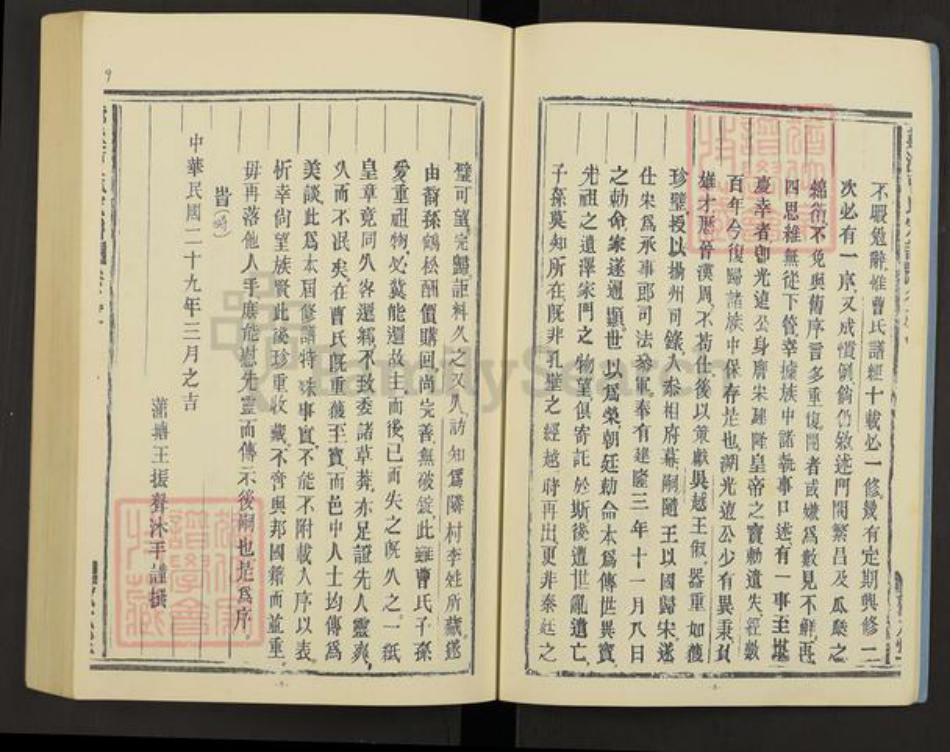 不暇勉辭惟曹氏譜經十載必一修幾有定期興修一
次必有一序又成慣例銜仍敘述門閥繁昌及瓜瓞之
綿衍不免與舊序言多重復閱者或嫌為數見不鮮再
四思維無從下管幸據族中諸執事口述有一事至堪
慶幸者卽光遠公身膺宋建隆皇帝之寶勅遺失經數
百年今復歸諸族中保存是也溯光遠公少有異秉負
雄才歷晉漢周不苟仕後以策獻吳越王俶器重如獲
珍璧授以揚州司錄入參相府幕嗣隨王以國歸宋遂
仕宋為承事郎司法參軍奉有建隆三年十一月八日
之勅命家遂通顯世以為榮朝廷勅命本為傳世異寶
先祖之遺澤家門之物望俱寄託於斯後遭世亂遺亡
子孫莫知所在既非孔壁之經越時再出更非秦廷之
璧可望完歸詎料久之又久訪知為隣村李姓所藏遂
由裔孫鶴松酬價購回尚完善無破錠此雖曹氏子孫
愛重祖物必冀能還故主而後已而失之既久之一紙
皇章竟同久客還鄉不致委諸草莽亦足證先人靈爽
久而不泯矣在曹氏既重獲至寶而邑中人士均傳為
美談此為本屆修譜特殊事實不能不附載人序以表
祈幸尙望族賢此後珍重收藏不啻與邦國籍而並重
毋再落他人手庶能慰先靈而傳示後嗣也是為序
皆
中華民國二十九年三月之吉
蒲塘王振聲沐手謹撰
FamilySearch